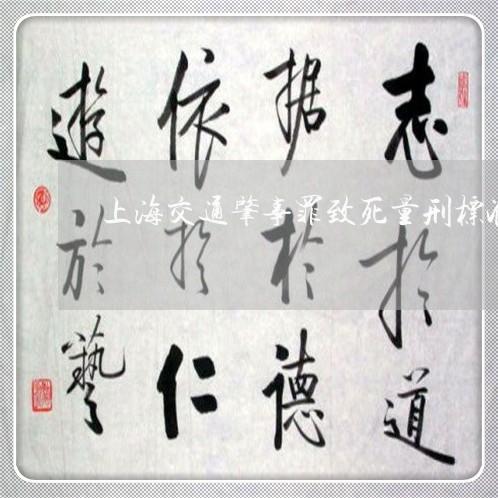 志於道
据於德
依於仁
遊於藝
上海交通肇事罪致死量刑標